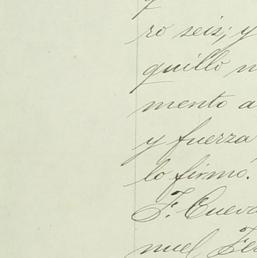 ro seis; y
quillo
mento a
y fuerza
lo firmó.
F. Cueva
nuel Fe